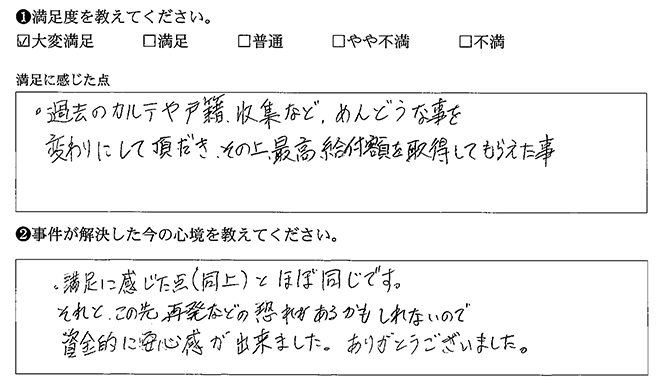 ❶満足度を教えてください。
☑大変満足 □満足 □普通 □やや不満 □不満
満足に感じた点
。過去のカルテや戸籍、収集など、めんどうな事を
変わりにして頂だき、その上、最高給付額を取得してもらえた事
❷事件が解決した今の心境を教えてください。
。満足に感じた点(同上)とほぼ同じです。
それと、この先、再発などの恐れがあるかもしれないので
資金的に安心感が出来ました。ありがとうございました。